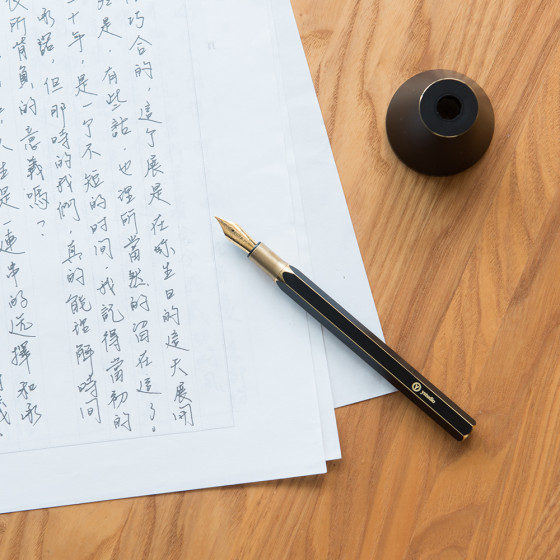 巧合的，這個展是在妳生日的這天展開
是，有些話，也理所當然的留在這了。
十年，是一個不短的時間，我記得當初的
承諾，但那時的我們，真的能諒解時間
所背負的意義嗎？
生是一連串的選擇和承
ystudio